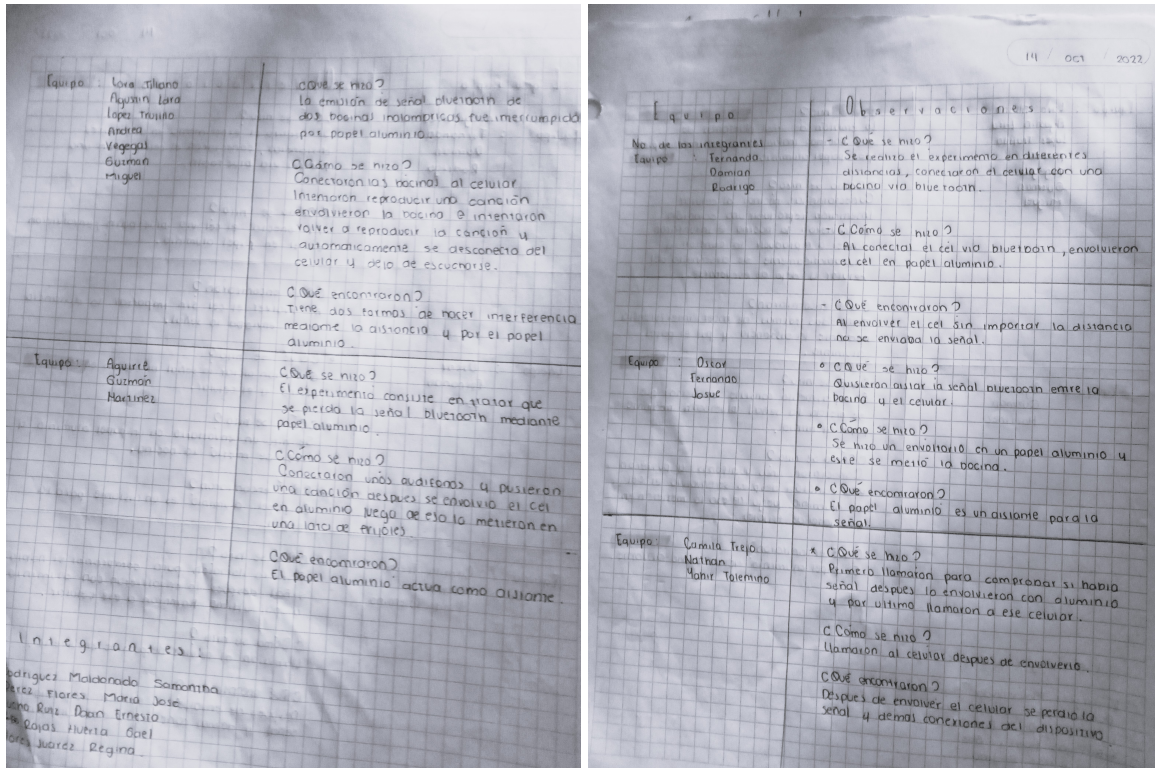 Equipo : Lara Tiliano
Agustin Lara
Lopez Trujillo
Andrea
Vegegas
Guzman
Miguel
¿Qué se hizo?
La emisión de señal bluetooth de
dos bocinas inalambricas fue interrumpida
por papel aluminio.
¿Cómo se hizo?
Conectaron las bocinas al celular
Intentaron reproducir una canción
envolvieron la bocina e intentaron
volver a reproducir la canción y
automaticamente se desconecta del
celular y dejo de escucharse.
¿Qué encontraron?
Tiene dos formas de hacer interferencia
mediante la distancia y por el papel
aluminio.
Equipo: Aguirre
Guzmán
Martinez
¿Qué se hizo?
El experimento consiste en tratar que
se pierda la señal bluetooth mediante
papel aluminio.
¿Cómo se hizo?
Conectaron unos audifonos y pusieron
una canción despues se envolvio el cel
en aluminio luego de eso lo metieron en
una lata de frijoles.
¿Qué encontraron?
El papel aluminio actua como aislante.
Integrantes:
Maldonado Samantha
Flores Maria José
Ruiz Dean Ernesto
Rojas Huerta Gael
Juarez Regina
14 / oct / 2022
Equipo Observaciones
No. de los integrantes
Equipo : Fernando
Damian
Rodrigo
- ¿Qué se hizo?
Se realizo el experimento en diferentes
distancias, conectaron el celular con una
bocina via bluetooth.
- ¿Cómo se hizo?
Al conectar el cel via bluetooth, envolvieron
el cel en papel aluminio.
- ¿Qué encontraron?
Al envolver el cel sin importar la distancia
no se enviaba la señal.
Equipo : Oscar
Fernando
Josue
• ¿Qué se hizo?
Quisieron aislar la señal bluetooth entre la
bocina y el celular.
• ¿Cómo se hizo?
Se hizo un envoltorio en un papel aluminio y
este se metió la bocina.
• ¿Qué encontraron?
El papel aluminio es un aislante para la
señal.
Equipo: Camila Trejo
Nathan
Yahir Tolentino
* ¿Qué se hizo?
Primero llamaron para comprobar si habia
señal despues lo envolvieron con aluminio
y por ultimo llamaron a ese celular.
¿Cómo se hizo?
Llamaron al celular despues de envolverlo.
¿Qué encontraron?
Despues de envolver el celular se perdio la
señal y demas conexiones del dispositivo.